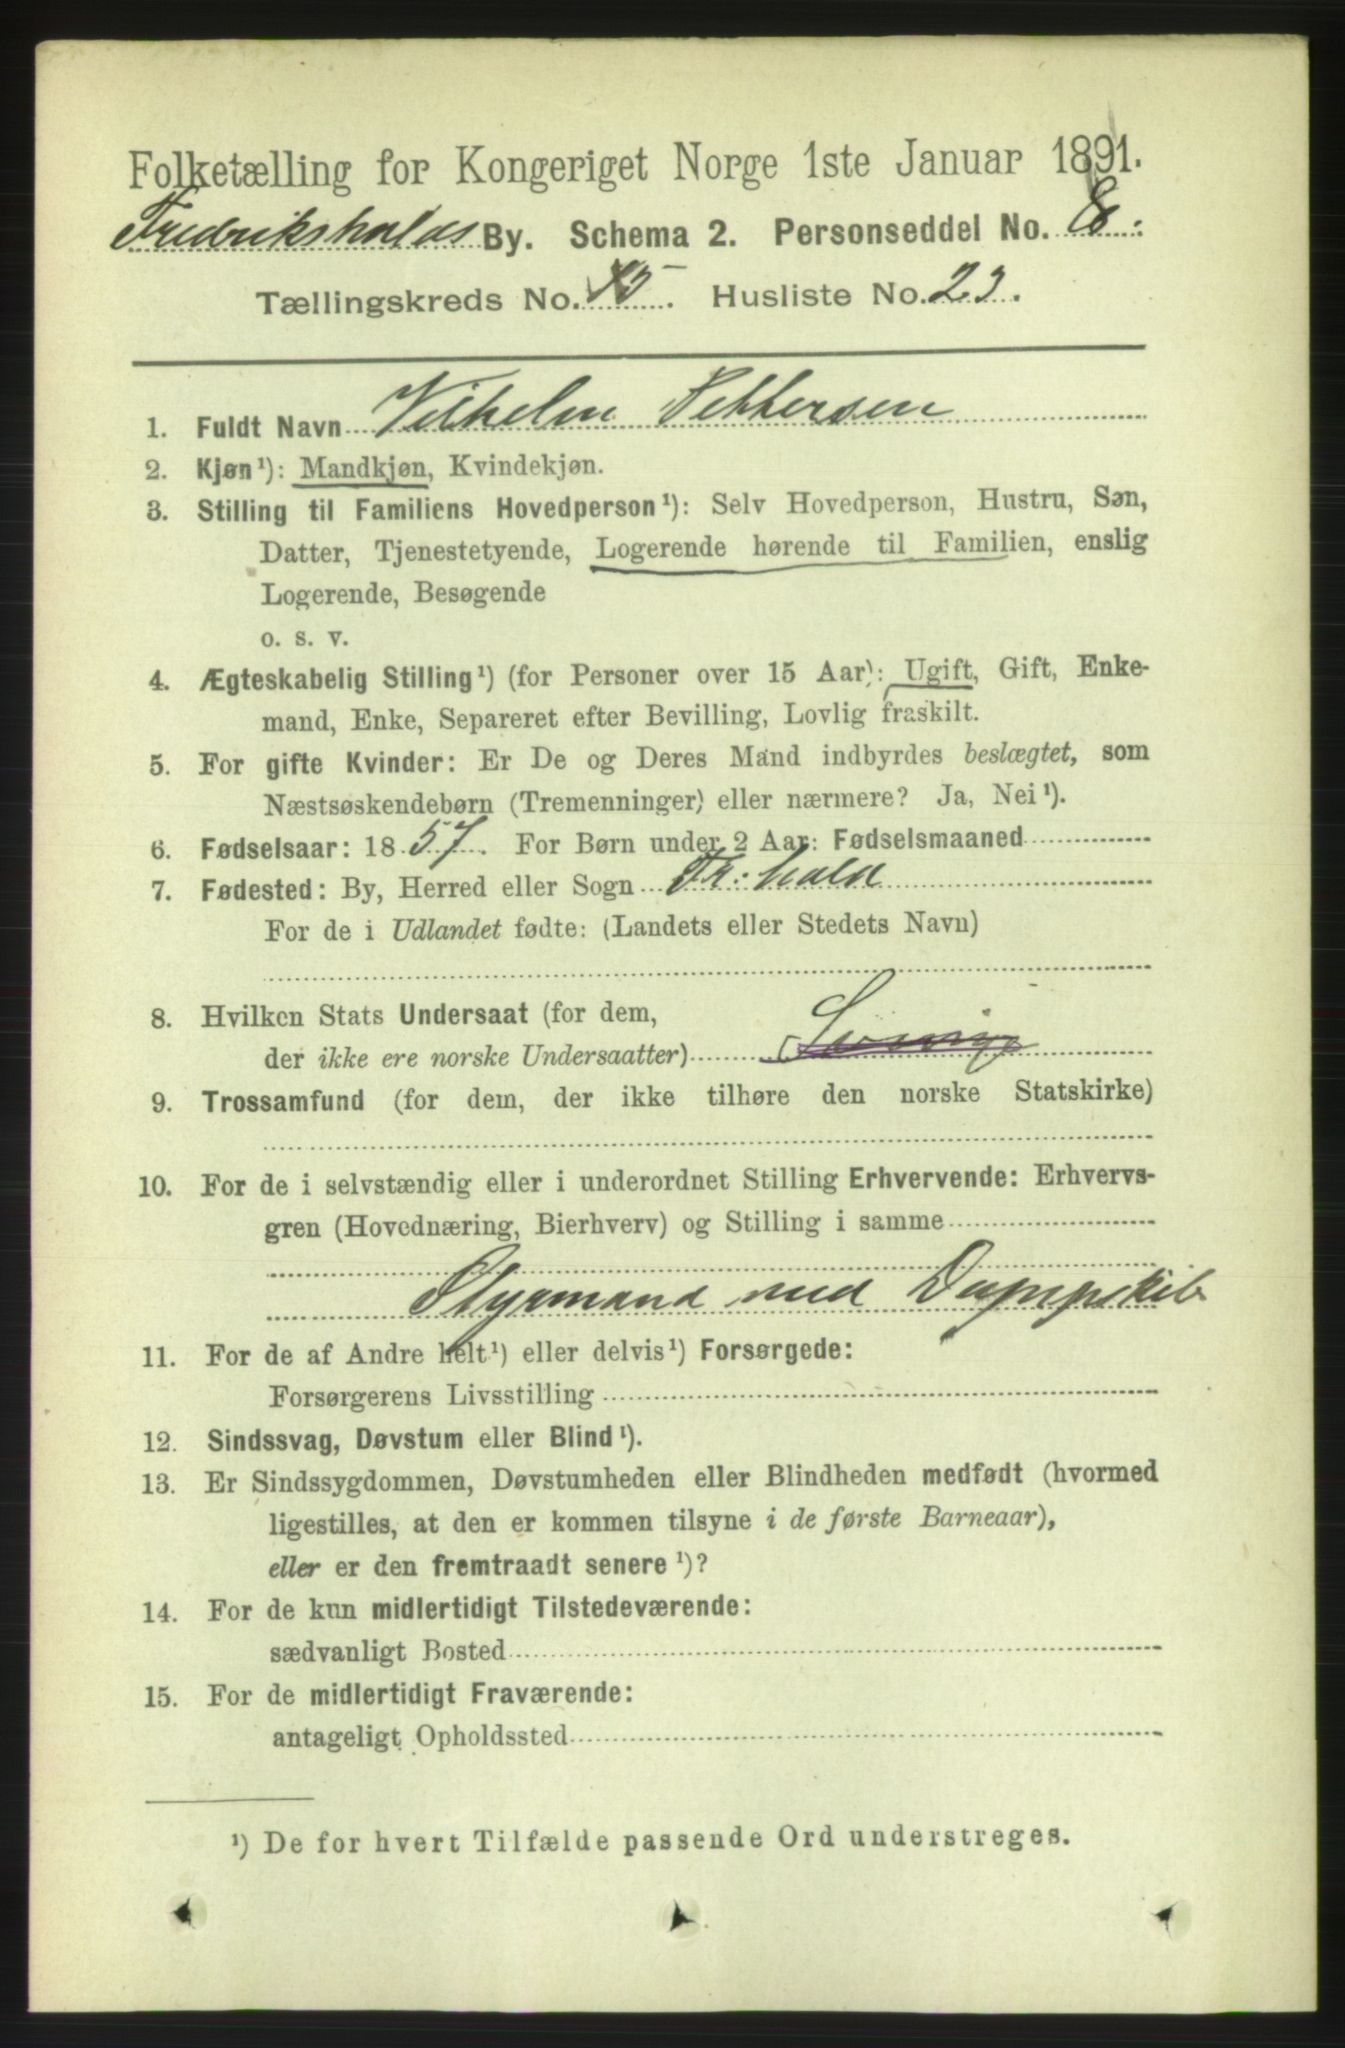 Folketælling for Kongeriget Norge 1ste Januar 1891.
Fredrikshalds By. Schema 2. Personseddel No. 8.
Tællingskreds No. 15. Husliste No. 23.
1. Fuldt Navn Vilhelm Pettersen
2. Kjøn¹): Mandkjøn, Kvindekjøn.
3. Stilling til Familiens Hovedperson¹): Selv Hovedperson, Hustru, Søn,
Datter, Tjenestetyende, Logerende hørende til Familien, enslig
Logerende, Besøgende
o. s. v.
4. Ægteskabelig Stilling¹) (for Personer over 15 Aar): Ugift, Gift, Enke-
mand, Enke, Separeret efter Bevilling, Lovlig fraskilt.
5. For gifte Kvinder: Er De og Deres Mand indbyrdes beslægtet, som
Næstsøskendebørn (Tremenninger) eller nærmere? Ja, Nei¹).
6. Fødselsaar: 1857. For Børn under 2 Aar: Fødselsmaaned
7. Fødested: By, Herred eller Sogn Fr:hald
For de i Udlandet fødte: (Landets eller Stedets Navn)
8. Hvilken Stats Undersaat (for dem,
der ikke ere norske Undersaatter)
9. Trossamfund (for dem, der ikke tilhøre den norske Statskirke)
10. For de i selvstændig eller i underordnet Stilling Erhvervende: Erhvervs-
gren (Hovednæring, Bierhverv) og Stilling i samme
Styrmand med Dampskib
11. For de af Andre helt¹) eller delvis¹) Forsørgede:
Forsørgerens Livsstilling
12. Sindssvag, Døvstum eller Blind¹).
13. Er Sindssygdommen, Døvstumheden eller Blindheden medfødt (hvormed
ligestilles, at den er kommen tilsyne i de første Barneaar),
eller er den fremtraadt senere¹)?
14. For de kun midlertidigt Tilstedeværende:
sædvanligt Bosted
15. For de midlertidigt Fraværende:
antageligt Opholdssted
¹) De for hvert Tilfælde passende Ord understreges.